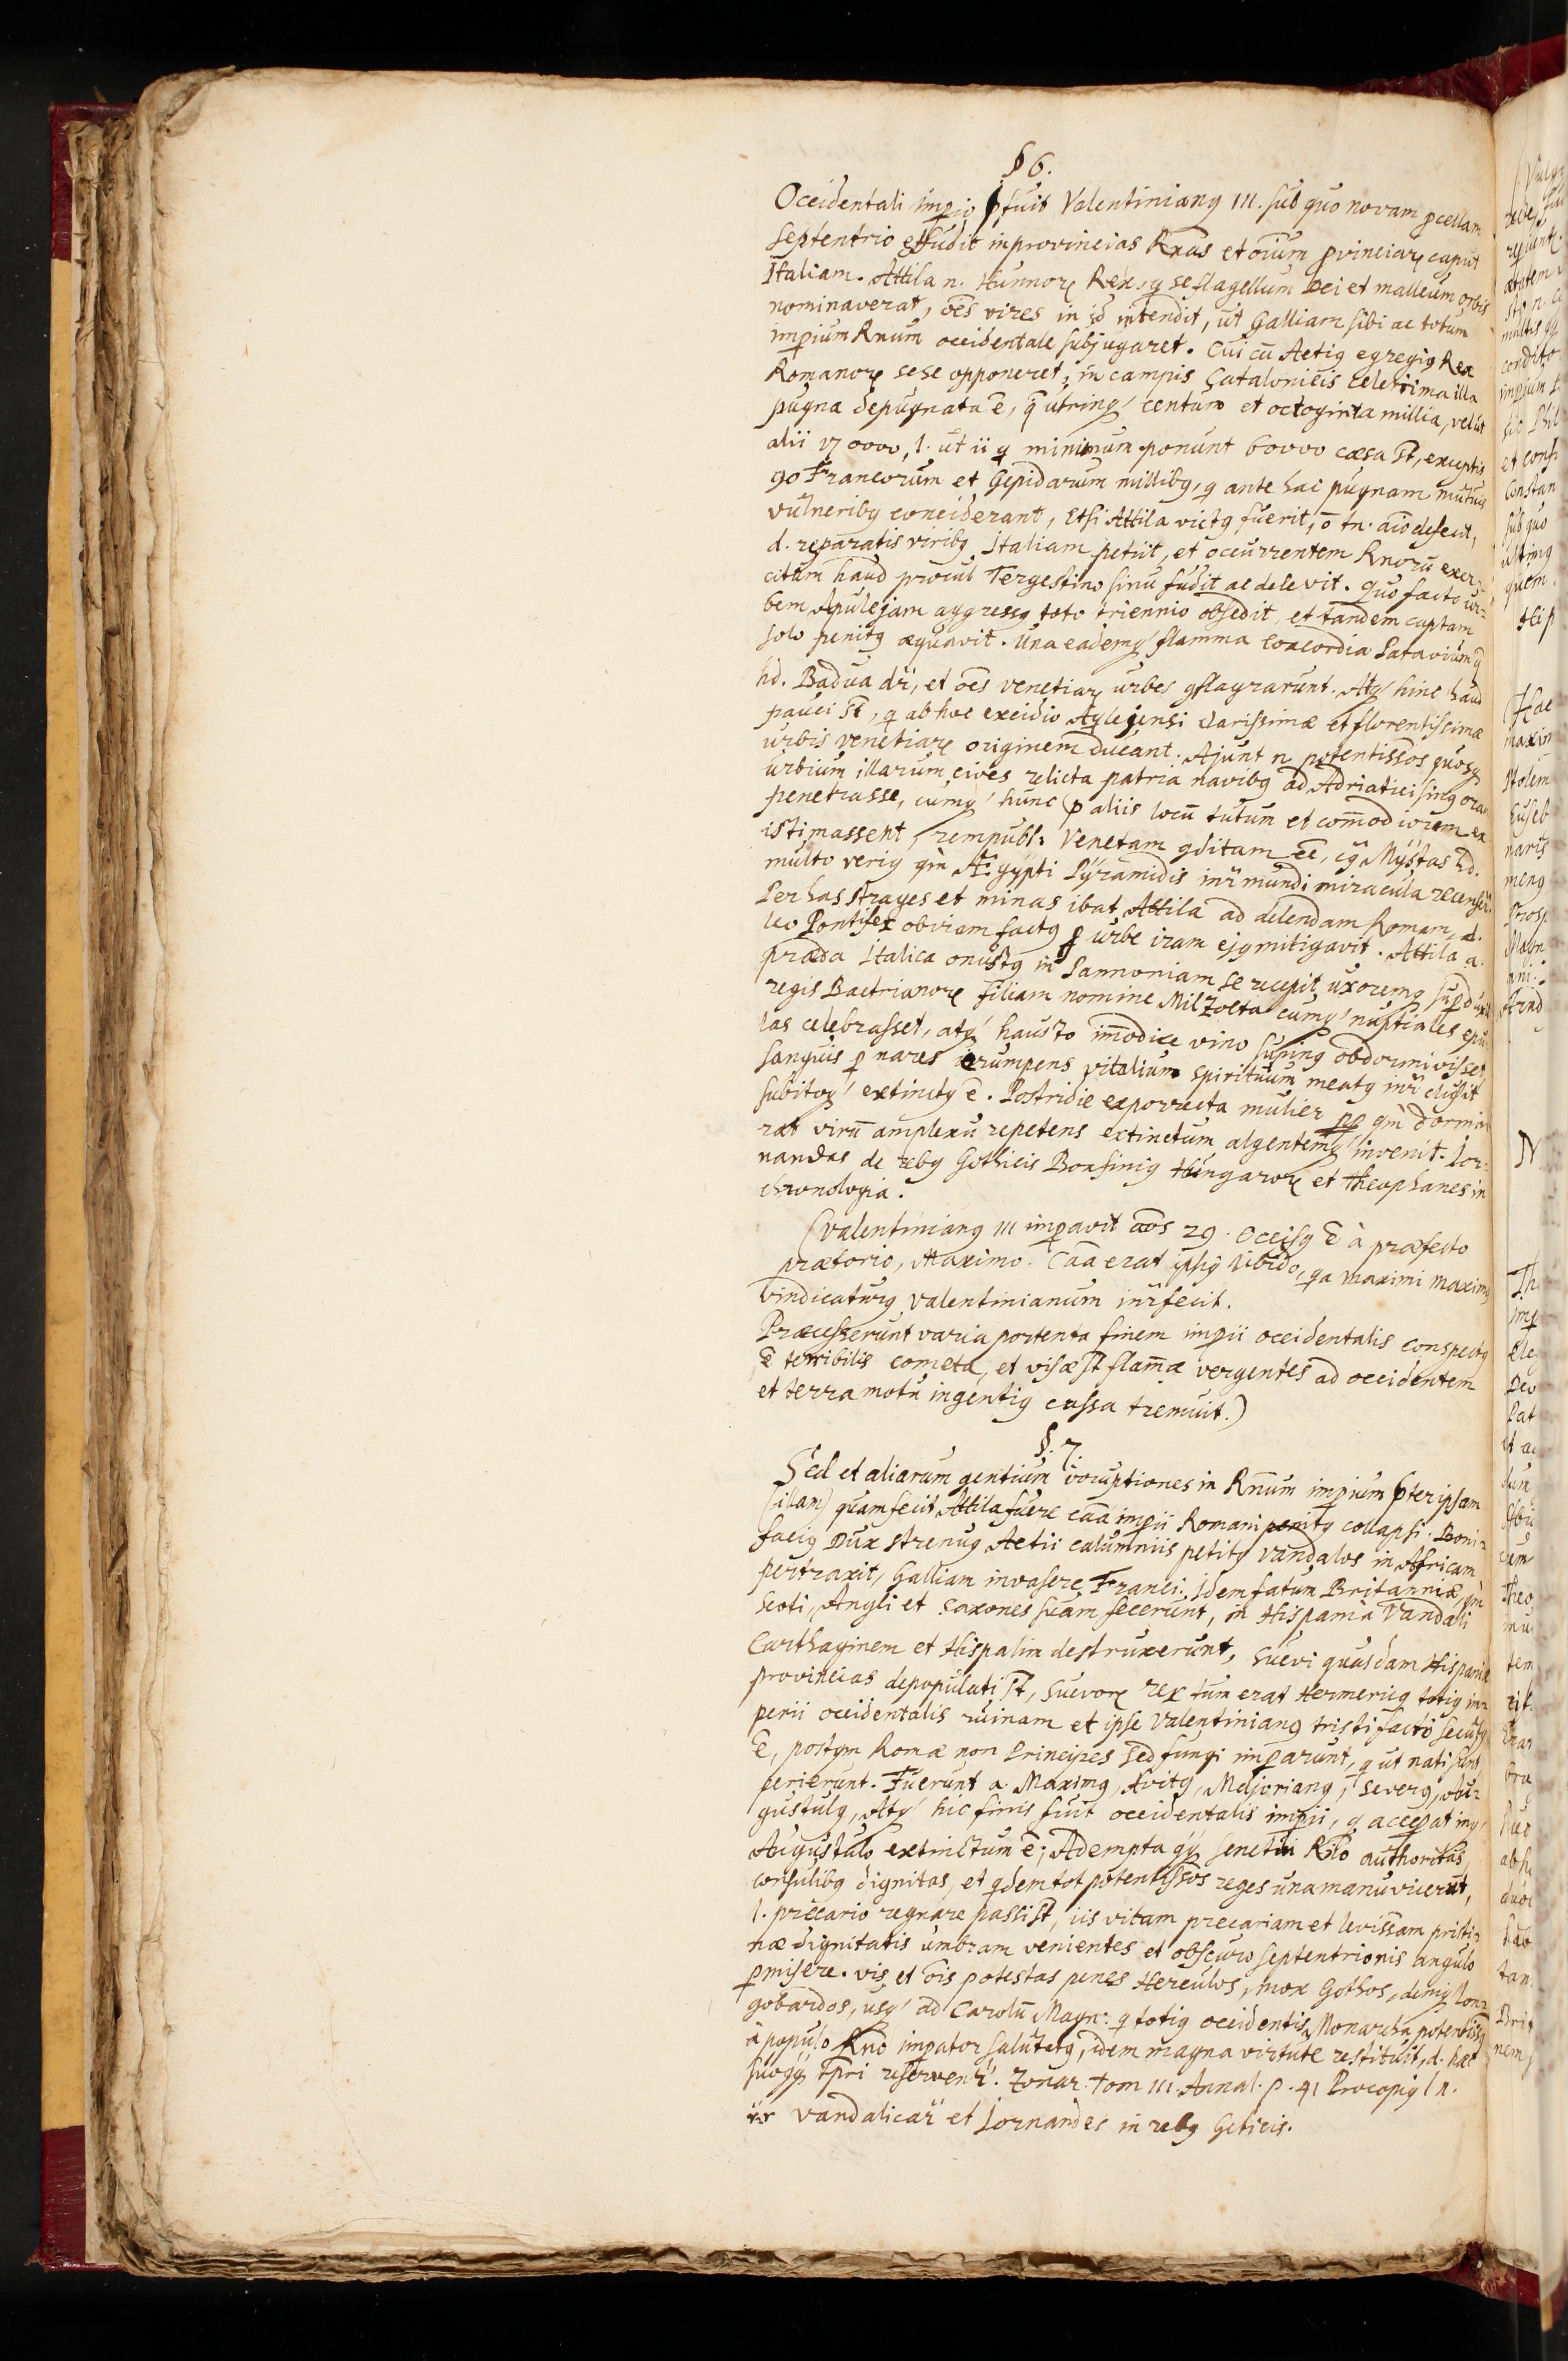 § 6.
Occidentali impio pfuit Valentiniang III. sub quo novam pcellam
Septentrio effudit in provincias Rnas et oium provinciarꝝ caput
Italiam. Attila n. Hunnorꝝ Rex, q se flagellum Dei et malleum orbis
nominaverat, oēs vires in id intendit, ut Galliam sibi ac totum
impium Rnum occidentale subjugaret. Cui cū Aetig egregig Rex
Romanorꝝ sese opponeret, in campis Catalonicis celerrima illa
pugna depugnata ē, q̄ utrinq centum et octoginta millia, velut
alii 17 0000, l. ut ii q minimum ponunt 60000 cæsa st, exceptis
90 Francorum et Gepidarum millibg, q ante hac pugnam mutuis
vulneribg conciderant, Etsi Attila victg fuerit, ō tn. aīo defecit,
d. reparatis viribg Italiam petiit, et occurrentem Rnorū exer-
citum haud procul Tergestino sinu fudit ac delevit. Quo facto ur-
bem Apulejam aggressg toto triennio obsedit, et tandem captam
solo penitg æquavit. Una eademq flamma Concordia Patavium q̄
hd. Badua dr̄, et oēs Venetiarꝝ urbes gflagrarunt. Atq hinc haud
pauci st, q ab hoc excidio Aqlejensi clarissimæ et florentissimæ
urbis Venetiarꝝ originem ducant. Ajunt n potentissos quosq
urbium illarum cives relicta patria navibg ad Adriatici sing oram
penetrasse, cumq hunc p aliis locū tutum et com̄odiorem ex
istimassent, rempubl: Venetam gditam eē, Mystas hd.
multo verig qm̄ Ægypti Pÿramidis inr̄ mundi miracula recenser̄
Per has strages et minas ibat Attila ad delendam Romam, d.
leo Pontifex obviam factg p urbe iram ejg mitigavit. Attila a.
præda Italica onustg in Pannoniam se recepit uxoremq supduxit
regis Bactrianorꝝ filiam nomine Milzolta cumq nuptiales epu
las celebrasset, atq hausto im̄odice vino suping obdormivisset
sanguis p nares erumpens vitalium spirituum meatg inr̄clusit
subitoq extinctg ē. Postridie experrecta mulier qm̄ dormie
rat virū amplexu repetens extinctum algentemq invenit. Jor-
nandes de rebg Gothicis Bonfinig Hungarorꝝ et Theophanes in
chronologia.
(Valentiniang III impavit aōs 29. Occisg ē à præfecto
prætorio, Maximo. Caā erat ipsig libido, qa Maximi maxim
vindicaturg Valentinianum inr̄fecit.
Præcesserunt varia portenta finem impii occidentalis conspectg
ē terribilis cometa, et visæ st flam̄æ vergentes ad occidentem
et terra motu ingentig cassa tremuit.)
§. 7.
Sed et aliarum gentium irruptiones in Rnum impium pter ipsam
(illam) quam fecit Attila fuere caā impii Romani penitg collapsi. Boni-
facig Dux strenug Aetii calumniis petitg Vandalos in Africam
pertraxit, Galliam invasere Franci. Idem fatum Britanniæ, qm̄
Scoti, Angli et Saxones suam fecerunt, in Hispania Vandali
Carthaginem et Hispalim destruxerunt, Suevi quasdam Hispaniæ
provincias depopulati st, Suevorꝝ rex tum erat Hermericg totig im-
perii occidentalis ruinam et ipse Valentiniang tristi facto secutg
ē, postqm Romæ non Principes sed fungi imparunt, q ut nati sunt,
perierunt. Fuerunt a. Maximg, Avitg, Majoriang, Severg, Au-
gustulg, Atq hic finis fuit occidentalis impii, q accepat inq
Augustulo extinctum ē; Adempta qq senetui Rno authoritas,
consulibg dignitas, et qdem tot potentissos reges una manu vicerūt,
l. precario regnare passi st, iis vitam precariam et levissam pristi-
næ dignitatis umbram venientes et obscuro septentrionis angulo
pmisere. vis et ois potestas penes Herculos, mox Gothos, deniq Lon-
gobardos, usq ad Carolū Magn: q totig occidentis Monarcha potentissg
à populo Rno impator salutatg, idem magna virtute restituit, d. hæc
suo qq tpri reservent̄. Zonar. Tom III. Annal. p. 41 Procopig l n.
vandalicar̄ et Jornandes in rebg Geticis.